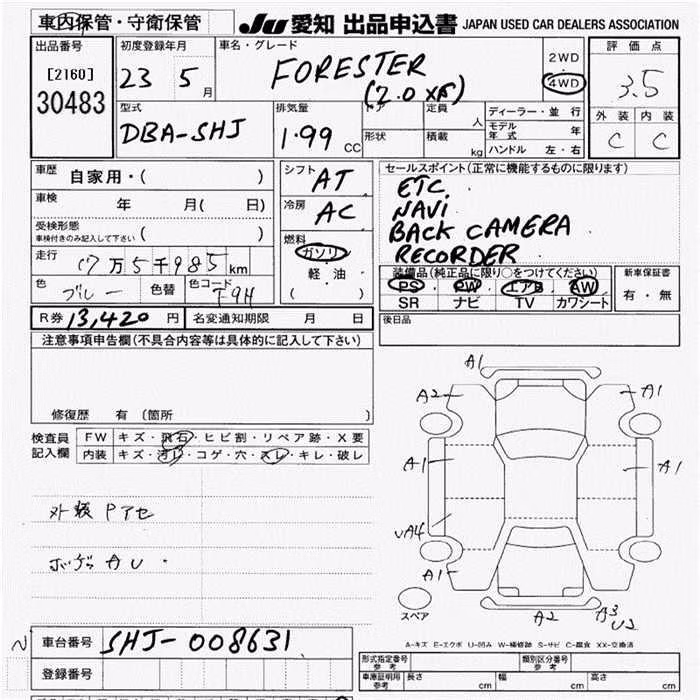 車内保管・守衛保管 JU 愛知 出品申込書 JAPAN USED CAR DEALERS ASSOCIATION
出品番号
[2160]
30483
初度登録年月
23 5 月
車名・グレード
FORESTER
(2.0 XS)
2WD
・
4WD
評価点
3.5
外装 内装
C C
型式
DBA-SHJ
排気量
1.99 CC
ドア 定員 人
形状 積載 kg
ディーラー・並行
モデル年式 年
ハンドル 左・右
車歴
自家用・( )
車検
年 月( 日)
受検形態
車検付きのみ記入して下さい ( )
走行
17万5千985 km
色 ブルー 色替 色コード
シフト AT
冷房 AC
燃料
ガソリン
軽油
( )
セールスポイント(正常に機能するものに限ります)
ETC
NAVI
BACK CAMERA
RECORDER
装備品(純正品に限り○をつけてください)
PS ・ PW ・ エアB ・ AW
SR ナビ TV カワシート
新車保証書
有・無
R券 13,420 円 名変通知期限 月 日
後日品
注意事項申告欄(不具合内容等は具体的に記入して下さい)
修復歴 有 〔箇所 〕
検査員
記入欄
FW キズ・飛石・ヒビ割・リペア跡・X要
内装 キズ・汚レ・コゲ・穴・スレ・キレ・破レ
外装 Pアセ
AU
A1
A2
A1
A1
A1
A4
A1
A2
A3
U2
スペア
A-キズ E-エクボ U-凹み W-補修跡 S-サビ C-腐食 XX-交換済
車台番号 SHJ-008631
登録番号
形式指定番号
参考
類別区分番号
参考
車庫証明用
参考
長さ cm 幅 cm 高さ cm